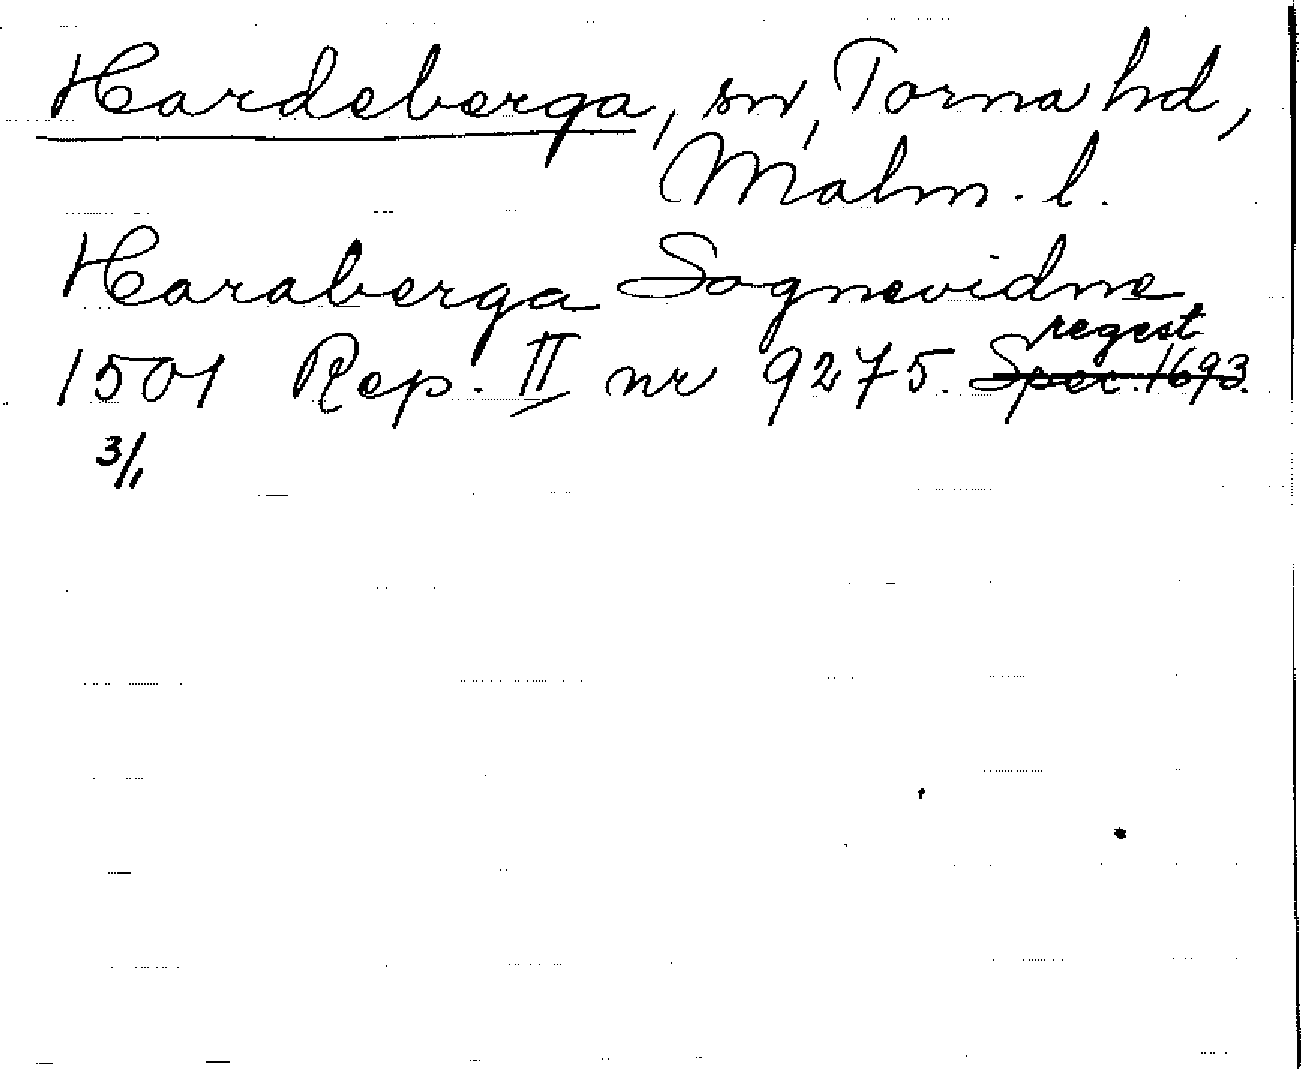 Hardeberga, sn, Torna hd,
Malm. l.
Haraberga Sognevidne
regest
1501 Rep. II nr 9275. Sper. 1693.
3/1